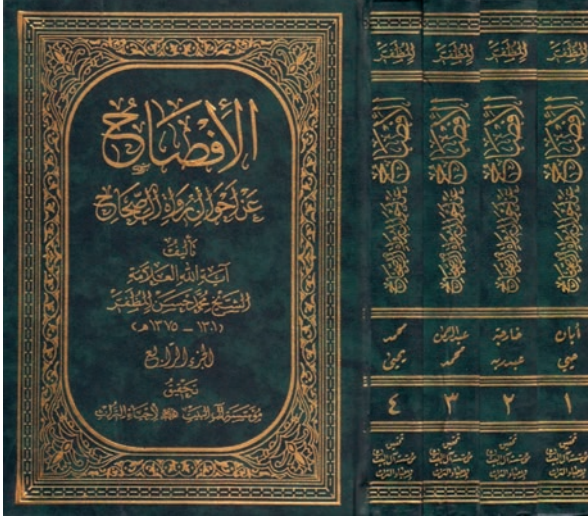 الإفصاح
عن أحوال رواة الصحاح
تأليف
آية الله العلامة
الشيخ محمد حسن المظفر
(١٣٠١ - ١٣٧٥هـ)
الجزء الرابع
تحقيق
مؤسسة آل البيت لإحياء التراث
المظفر
الإفصاح عن أحوال رواة الصحاح
أبان
١
تحقيق
مؤسسة آل البيت
لإحياء التراث
المظفر
الإفصاح عن أحوال رواة الصحاح
خارجة
عبد ربه
٢
تحقيق
مؤسسة آل البيت
لإحياء التراث
المظفر
الإفصاح عن أحوال رواة الصحاح
عبدالرحمن
محمد
٣
تحقيق
مؤسسة آل البيت
لإحياء التراث
المظفر
الإفصاح عن أحوال رواة الصحاح
محمد
يحيى
٤
تحقيق
مؤسسة آل البيت
لإحياء التراث